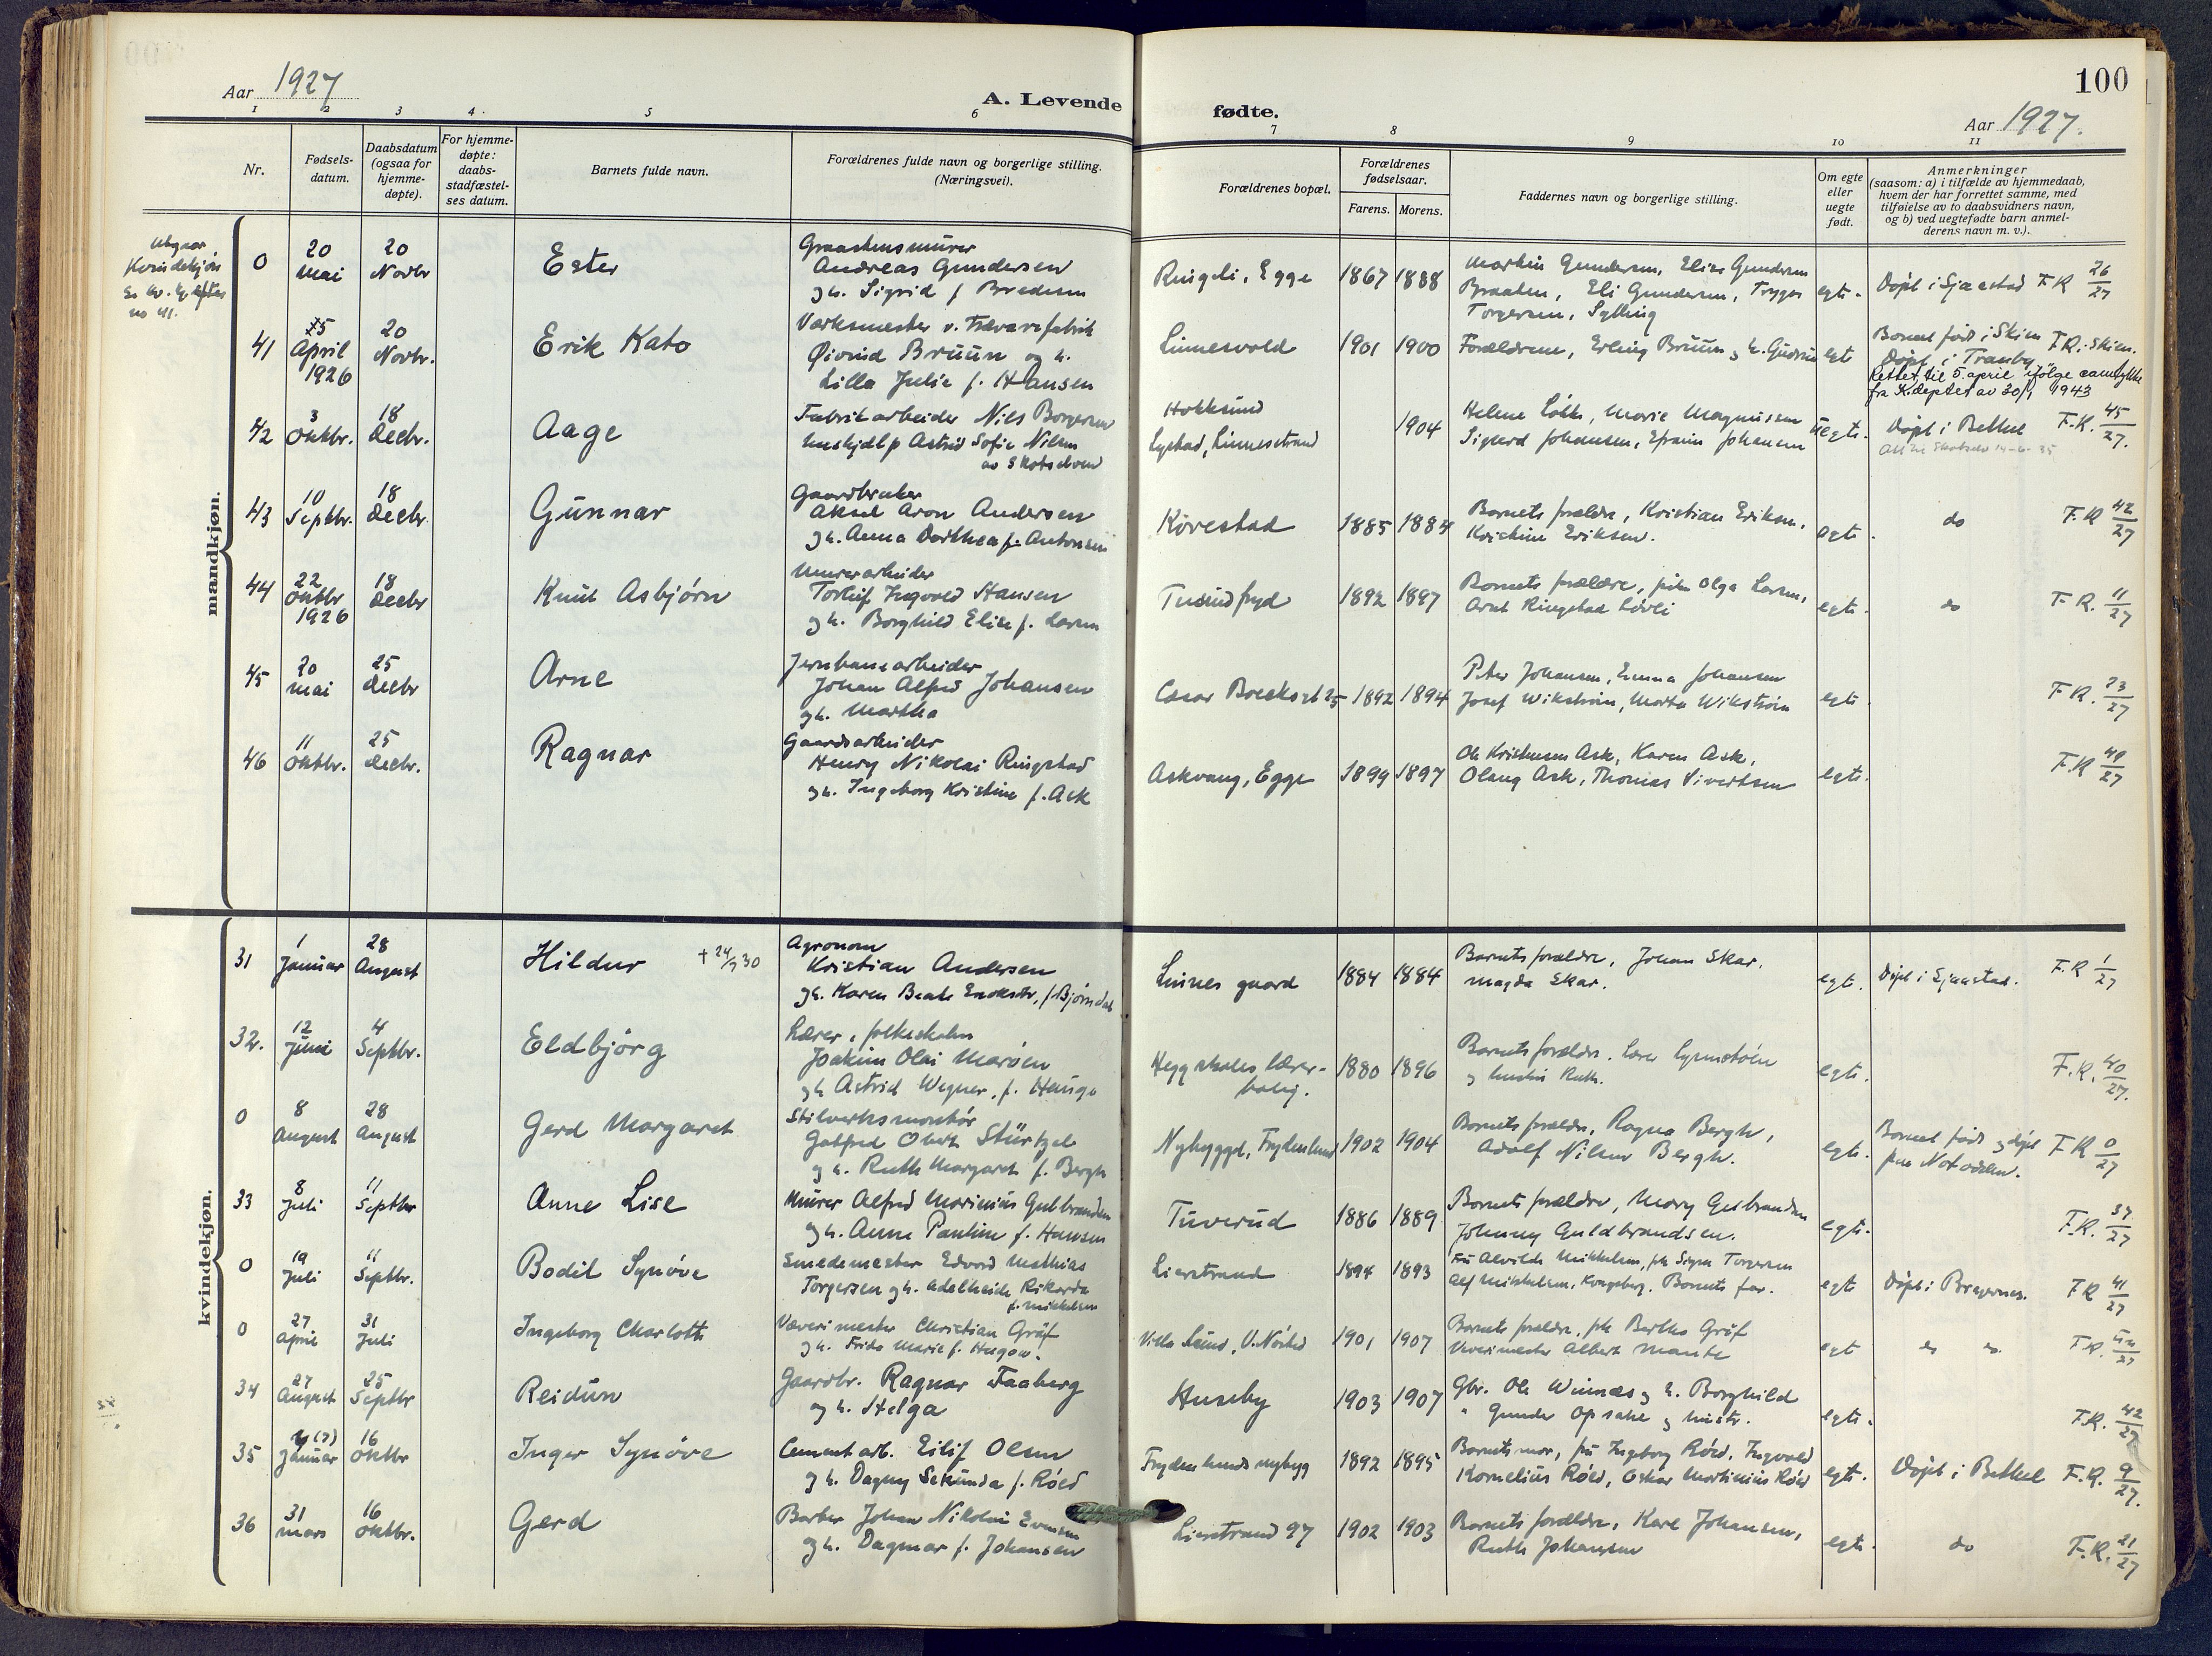 100
Aar 1927
A. Levende fødte.
Aar 1927.
1 2 3 4 5 6 7 8 9 10 11
Nr.
Fødselsdatum.
Daabsdatum (ogsaa for hjemmedøpte).
For hjemmedøpte: daabsstadfæstelses datum.
Barnets fulde navn.
Forældrenes fulde navn og borgerlige stilling. (Næringsvei).
Forældrenes bopæl.
Forældrenes fødselsaar.
Farens. Morens.
Faddernes navn og borgerlige stilling.
Om egte eller uegte født.
Anmerkninger
(saasom: a) i tilfælde av hjemmedaab,
hvem der har forrettet samme, med
tilføielse av to daabsvidners navn,
og b) ved uegtefødte barn anmelderens navn m. v.).
mandkjøn.
Utgaar
Kvindekjøn
no 41.
0 20 Mai 20 Novbr Ester
Graastensmurer
Andreas Gundersen
og h. Sigrid f. Bredesen
Ringeli, Egge 1867 1888
Martin Gundersen, Elise Gundersen
Braaten, Eli Gundersen, Trygve
Torgersen, Sylling
egte. Døpt i Sjaastad F.R 26/27
41 5 April 1926 20 Novbr. Erik Kato
Verksmester v. Trævarefabrik
Øivind Bruun og h.
Lilla Julie f. Hansen
Linnesvold 1901 1900
Forældrene, Erling Bruun og h. Gudrun
egte
Barnet født i Skien F.R. i Skien.
Døpt i Tranby
Rettet til 5. april ifølge samtykke
fra K.deptet av 30/1 1943
42 3 Oktbr. 18 Decbr. Aage
Fabrikarbeider Nils Borgersen
Hushjælp Astrid Sofie Nilsen
av Skotselven
Hokksund
Lystad, Linnesstrand 1904
Helene Løkke, Marie Magnussen
Sigurd Johansen, Efraim Johansen
uegte. Døpt i Bethel F.R. 45/27.
43 10 Septbr. 18 Decbr. Gunnar
Gaardbruker
Aksel Aron Andersen
og h. Anna Dorthea f. Antonsen
Kovestad 1885 1884
Barnets forældre, Kristian Eriksen,
Kristine Eriksen.
egte. do F.R 42/27
44 22 Oktbr 1926 18 Decbr Knut Asbjørn
Murerarbeider
Torleif Ingvald Hansen
og h. Borghild Elise f. Larsen
Tuerudfryd 1892 1897
Barnets forældre, frk. Olga Larsen,
Arnt Ringstad Lövli
egte. do F.R. 11/27
45 20 Mai 25 Decbr Arne
Jernbanearbeider
Johan Alfred Johansen
og h. Martha
Cæsar Boecks gt 25 1892 1894
Peter Johansen, Emma Johansen
Josef Wikstrøm, Marta Wikstrøm
egte. F.R. 23/27
46 11 Oktbr. 25 Decbr. Ragnar
Gaardsarbeider
Henry Nikolai Ringstad
og h. Ingeborg Kristine f. Ask
Askvang, Egge 1899 1897
Ole Kristensen Ask, Karen Ask,
Olaug Ask, Thomas Sivertsen
egte. F.R 49/27
kvindekjøn.
31 1 Januar 28 August Hildur † 24/7 30
Agronom
Kristian Andersen
og h. Karen Beate Enoksdtr, f. Bjørndal
Linnes gaard 1884 1884
Barnets forældre, Johan Skar,
Magda Skar.
egte. Døpt i Sjaastad. F.R 1/27
32. 12 Juni 4 Septbr. Eldbjørg
Lærer i folkeskolen
Joakim Olai Marøen
og h Astrid Wegner, f. Hauge
Hegg skoles lærerbolig. 1880 1896
Barnets forældre. Lærer
og hustru Ruth.
egte. F.R. 40/27.
0 8 August 28 August Gerd Margaret
Stilverksmontør
Gotfred Olert Stürtzel
og h. Ruth Margaret f. Bergh
Nybygget, Frydenlund 1902 1904
Barnets forældre, Ragna Bergh,
Adolf Nilsen Bergh.
egte. Barnet født og døpt
paa Notodden. F.R 0/27
33 8 Juli 11 Septbr Anne Lise
Murer Alfred Marinius Gulbrandsen
og h. Anna Pauline f. Hansen
Tuverud 1886 1889
Barnets forældre, Mary Gulbrandsen
Johnny Guldbrandsen.
egte. F.R. 34/27
0 19 Juli 11 Septbr. Bodil Synøve
Smedemester Edvard Mathias
Torgersen og h. Adelheide Rikarda
f. Mikkelsen
Lierstrand 1894 1893
Fru Alvilde Mikkelsen, frk Signe Torgersen
Alf Mikkelsen, Kongsberg. Barnets far.
egte Døpt i Bragernes. F.R 41/27
0 27 April 31 Juli Ingeborg Charlotte
Væverimester Christian Gräf
og h. Frida Marie f. Hagan.
Villa Lund, V. Nøsted 1901 1907
Barnets forældre, frk Bertha Gräf
Væverimester Albert Mante
egte do do F.R.
34 27 August 25 Septbr Reidun
Gaardbr. Ragnar Faaberg
og h. Helga
Huseby 1903 1907
Gbr. Ole Winnæs og h. Borghild
" Gunder Opsahl og hustr.
egte. F.R. 42/27
35 4 (7) Januar 16 Oktbr Inger Synøve
Cement arb. Eilif Olsen
og h. Dagny Sekunda f. Røed
Frydenlunds nybygg 1892 1895
Barnets mor, fru Ingeborg Røed, Ingvald
Kornelius Røed, Oskar Martinius Røed
egte. Døpt i Bethel F.R. 9/27.
36 31 Mars 16 Oktbr. Gerd
Barber Johan Nikolai Evensen
og h. Dagmar f. Johansen
Lierstrand 97 1902 1903
Barnets forældre, Karl Johansen,
Ruth Johansen
egte. do F.R. 21/27